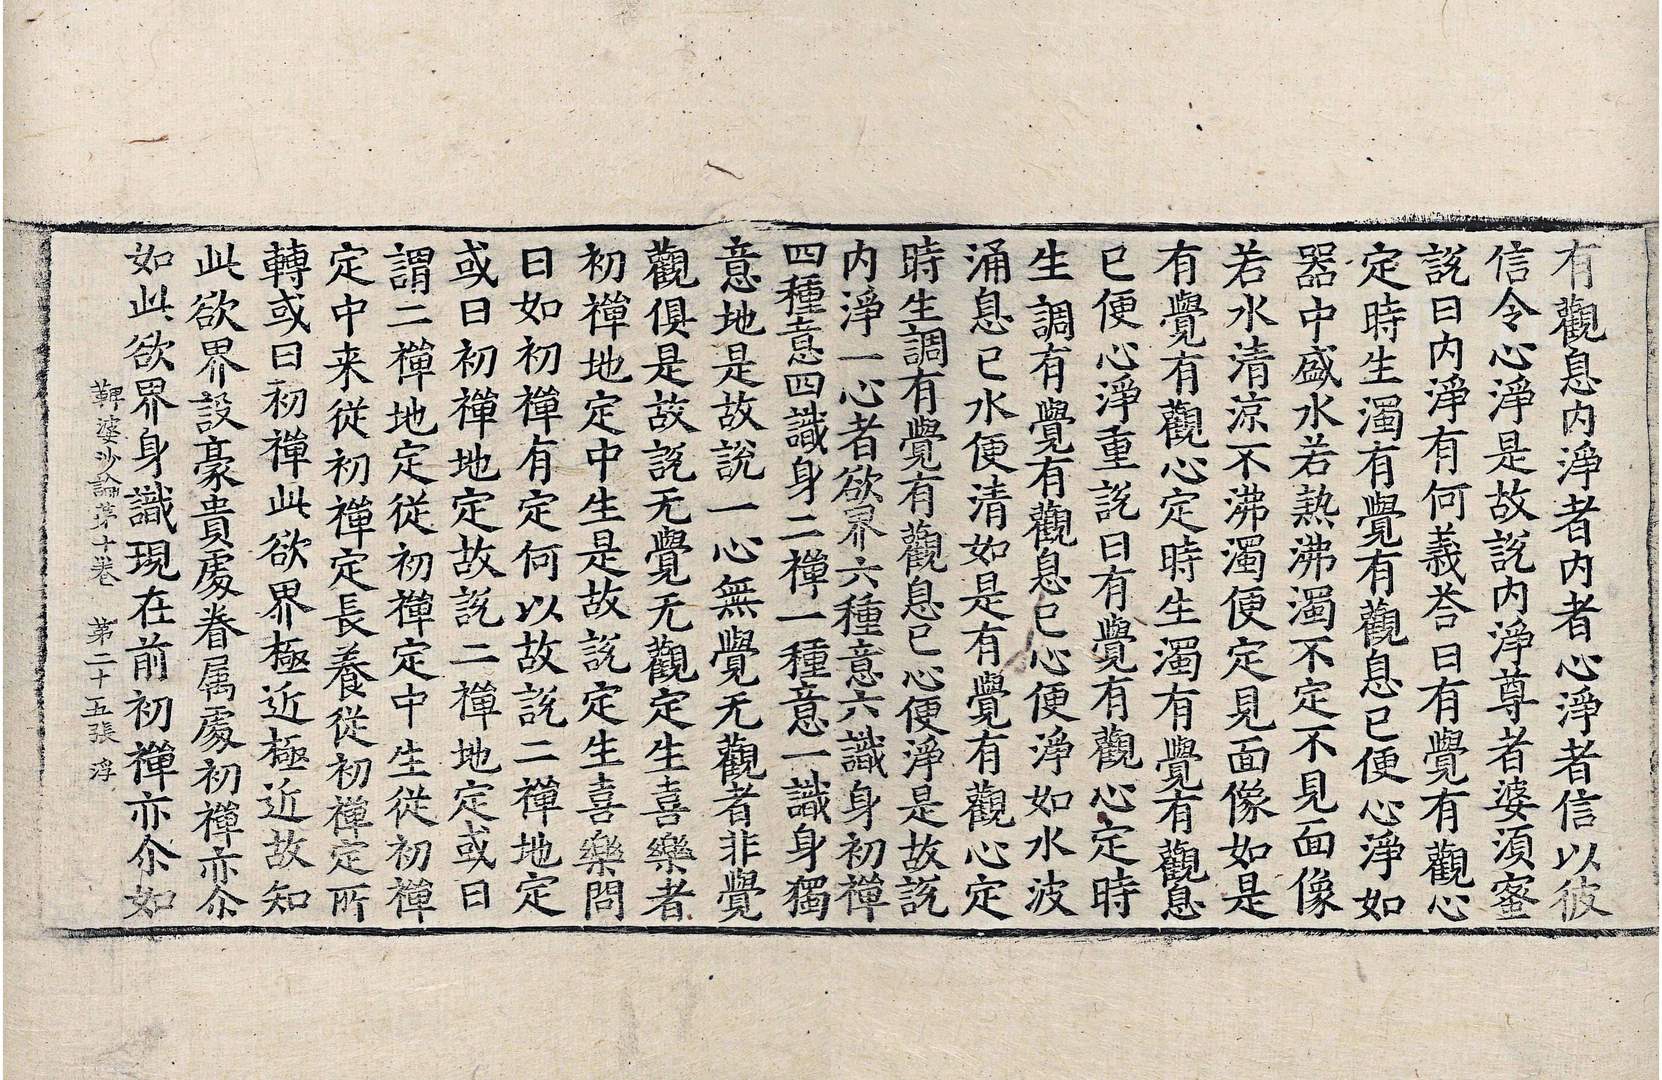 有觀息内淨者内者心淨者信以彼
信令心淨是故說内淨尊者婆須蜜
說曰内淨有何義荅曰有覺有觀心
定時生濁有覺有觀息已便心淨如
器中盛水若熱沸濁不定不見面像
若水清涼不沸濁便定見面像如是
有覺有觀心定時生濁有覺有觀息
已便心淨重說曰有覺有觀心定時
生調有覺有觀息已心便淨如水波
涌息已水便清如是有覺有觀心定
時生調有覺有觀息已心便淨是故說
内淨一心者欲界六種意六識身初禪
四種意四識身二禪一種意一識身獨
意地是故說一心無覺无觀者非覺
觀俱是故說无覺无觀定生喜樂者
初禪地定中生是故說定生喜樂問
曰如初禪有定何以故說二禪地定
或曰初禪地定故說二禪地定或曰
謂二禪地定從初禪定中生從初禪
定中来從初禪定長養從初禪定所
轉或曰初禪此欲界極近極近故知
此欲界設豪貴處眷属處初禪亦尒
如此欲界身識現在前初禪亦尒如
鞞婆沙論第十卷　第二十五張　浮